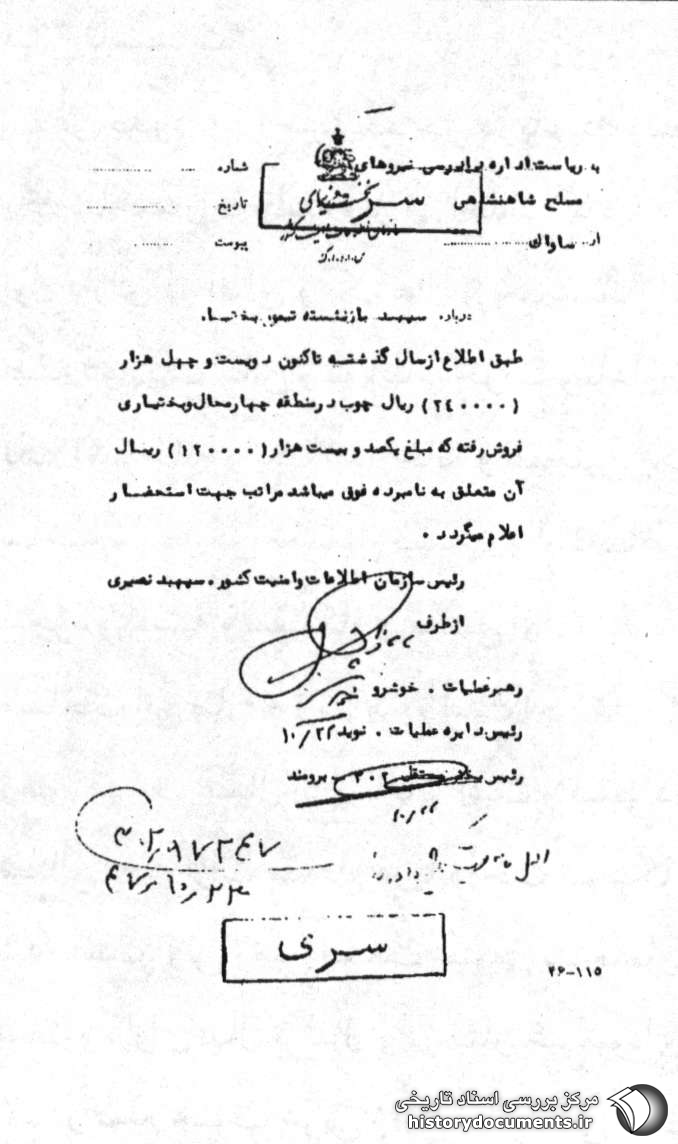 به ریاست اداره دادرسی نیروهای
مسلح شاهنشاهی
از ساواک
سری
نخست وزیری
سازمان اطلاعات و امنیت کشور
شماره
تاریخ
پیوست
درباره سپهبد بازنشسته تیمور بختیار
طبق اطلاع از سال گذشته تاکنون دویست و چهل هزار
(۲٤۰۰۰۰) ریال چوب در منطقه چهارمحال و بختیاری
فروش رفته که مبلغ یکصد و بیست هزار (۱۲۰۰۰۰) ریال
آن متعلق به نامبرده فوق میباشد مراتب جهت استحضار
اعلام میگردد .
رئیس سازمان اطلاعات و امنیت کشور . سپهبد نصیری
از طرف
رهبر عملیات . خوشرو
رئیس دایره عملیات . نوید ۱۰/۲۲
رئیس بخش مستقل ۳۰۲ – برومند
۱۰/۲۲
سری
۲۶–۱۱۵
مرکز بررسی اسناد تاریخی
historydocuments.ir